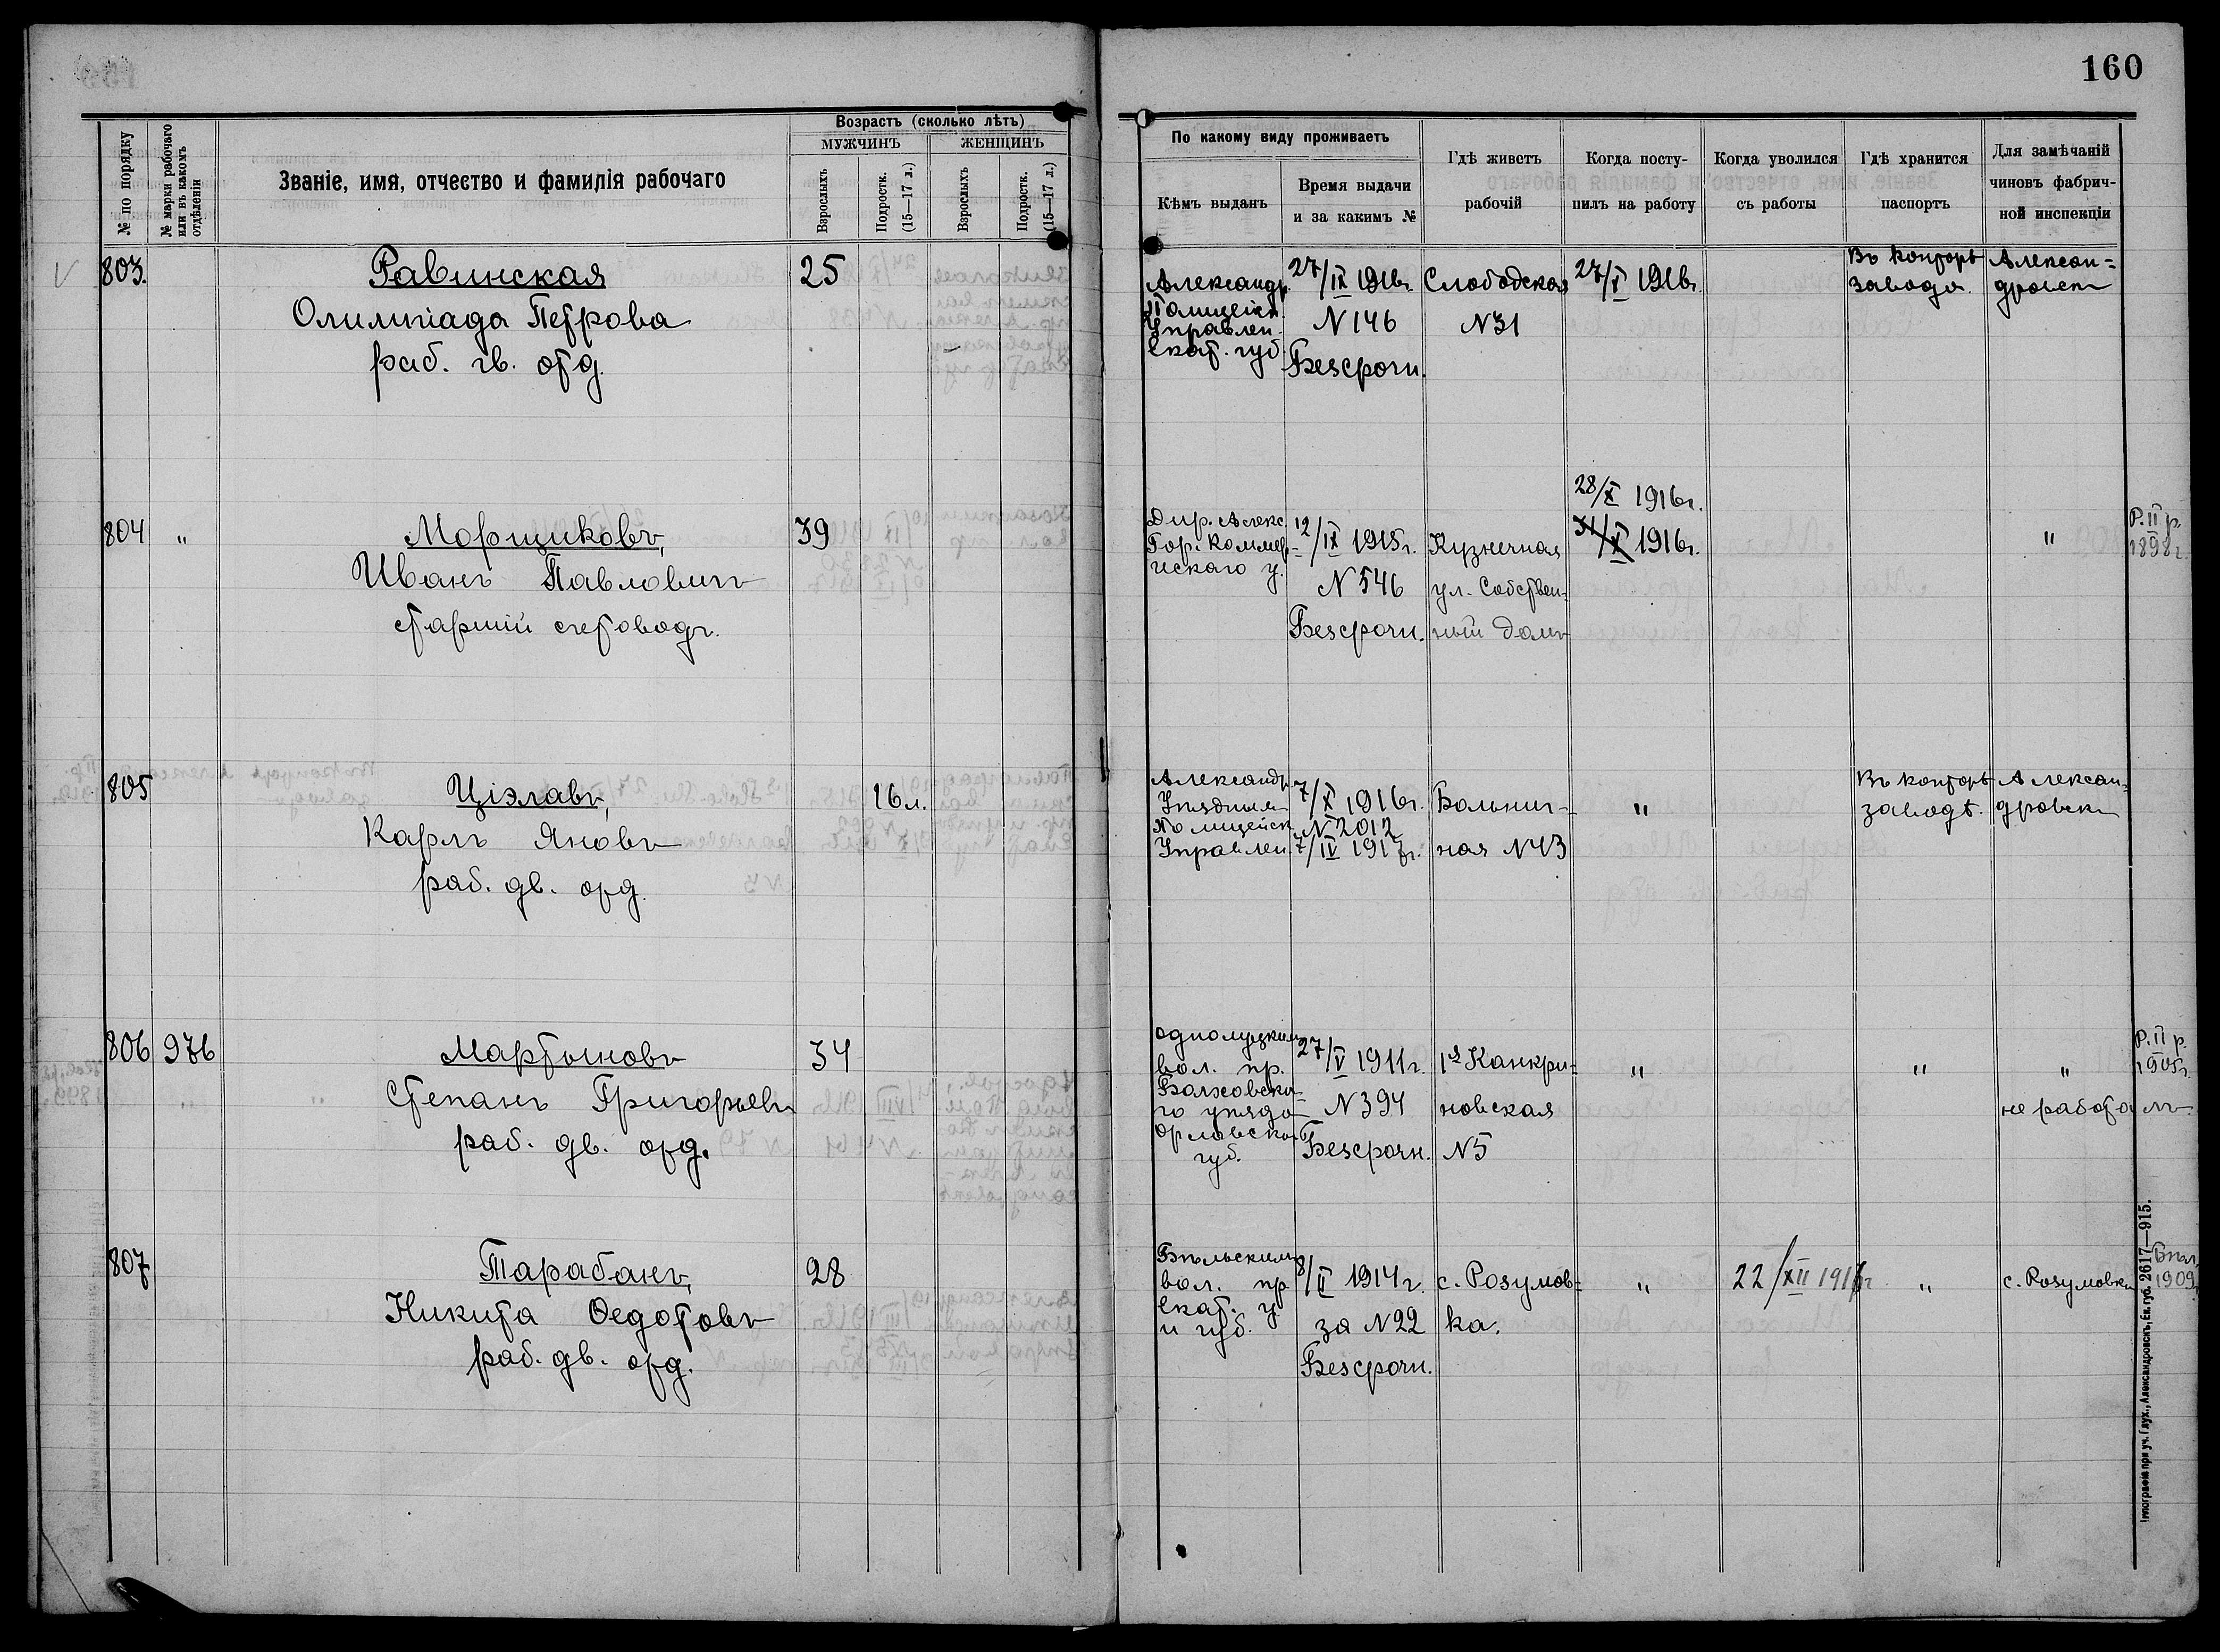 160
№ по порядку
№ марки рабочаго или въ какомъ отдѣленіи
Званіе, имя, отчество и фамилія рабочаго
Возрастъ (сколько лѣтъ)
МУЖЧИНЪ
ЖЕНЩИНЪ
Взрослыхъ
Подростк. (15—17 л.)
Взрослыхъ
Подростк. (15—17 л.)
По какому виду проживаетъ
Кѣмъ выданъ
Время выдачи
и за какимъ №
Гдѣ живетъ
рабочій
Когда посту-
пилъ на работу
Когда уволился
съ работы
Гдѣ хранится
паспортъ
Для замѣчаній
чиновъ фабрич-
ной инспекціи
803.
Равинская
Олимпіада Петрова
раб. гв. отд.
25
Александр.
Полицейск.
Управлен.
Екат. губ.
27/IX 1916г.
N 146
Безсрочн.
Слободская
N31
27/X 1916г.
Въ конторѣ
завода.
Алексан=
дровск
804 "
Морщиковъ,
Иванъ Павловичъ
старшій счетоводъ.
39
Дир. Алекс.
Гор. Коммер-
ческаго у.
12/IX 1915г.
N 546
Безсрочн.
Кузнечная
ул. Собствен-
ный домъ
28/X 1916г.
31/X 1916г.
"
Р. II р.
1898г.
805
Ціэлавъ,
Карлъ Яновъ
раб. дв. отд.
16 л.
Александр.
Уѣздным
Полицейск.
Управлен.
7/X 1916г.
N 2012
7/IV 1917г.
Больнич-
ная N43
"
Въ конторѣ
заводѣ.
Алексан=
дровск
806 976
Мартыновъ
Степанъ Григорьевъ
раб. дв. отд.
34
Однолуцкимъ
вол. пр.
Болховска-
го уѣзда
Орловской
губ.
27/V 1911г.
N 394
Безсрочн.
1я Канкри=
новская
N5
"
"
"
не работалъ
Р. II р.
1905г.
807
Тарабанъ,
Никита Ѳедотовъ
раб. дв. отд.
28
Бѣльскимъ
вол. пр.
Екат. у.
и губ.
8/II 1914г.
за N 22
Безсрочн.
с. Розумов=
ка.
"
22/XII 1916г
"
с. Розумовка
Бѣл.
1909.
Александровскъ, Ек. губ. 2617—915.